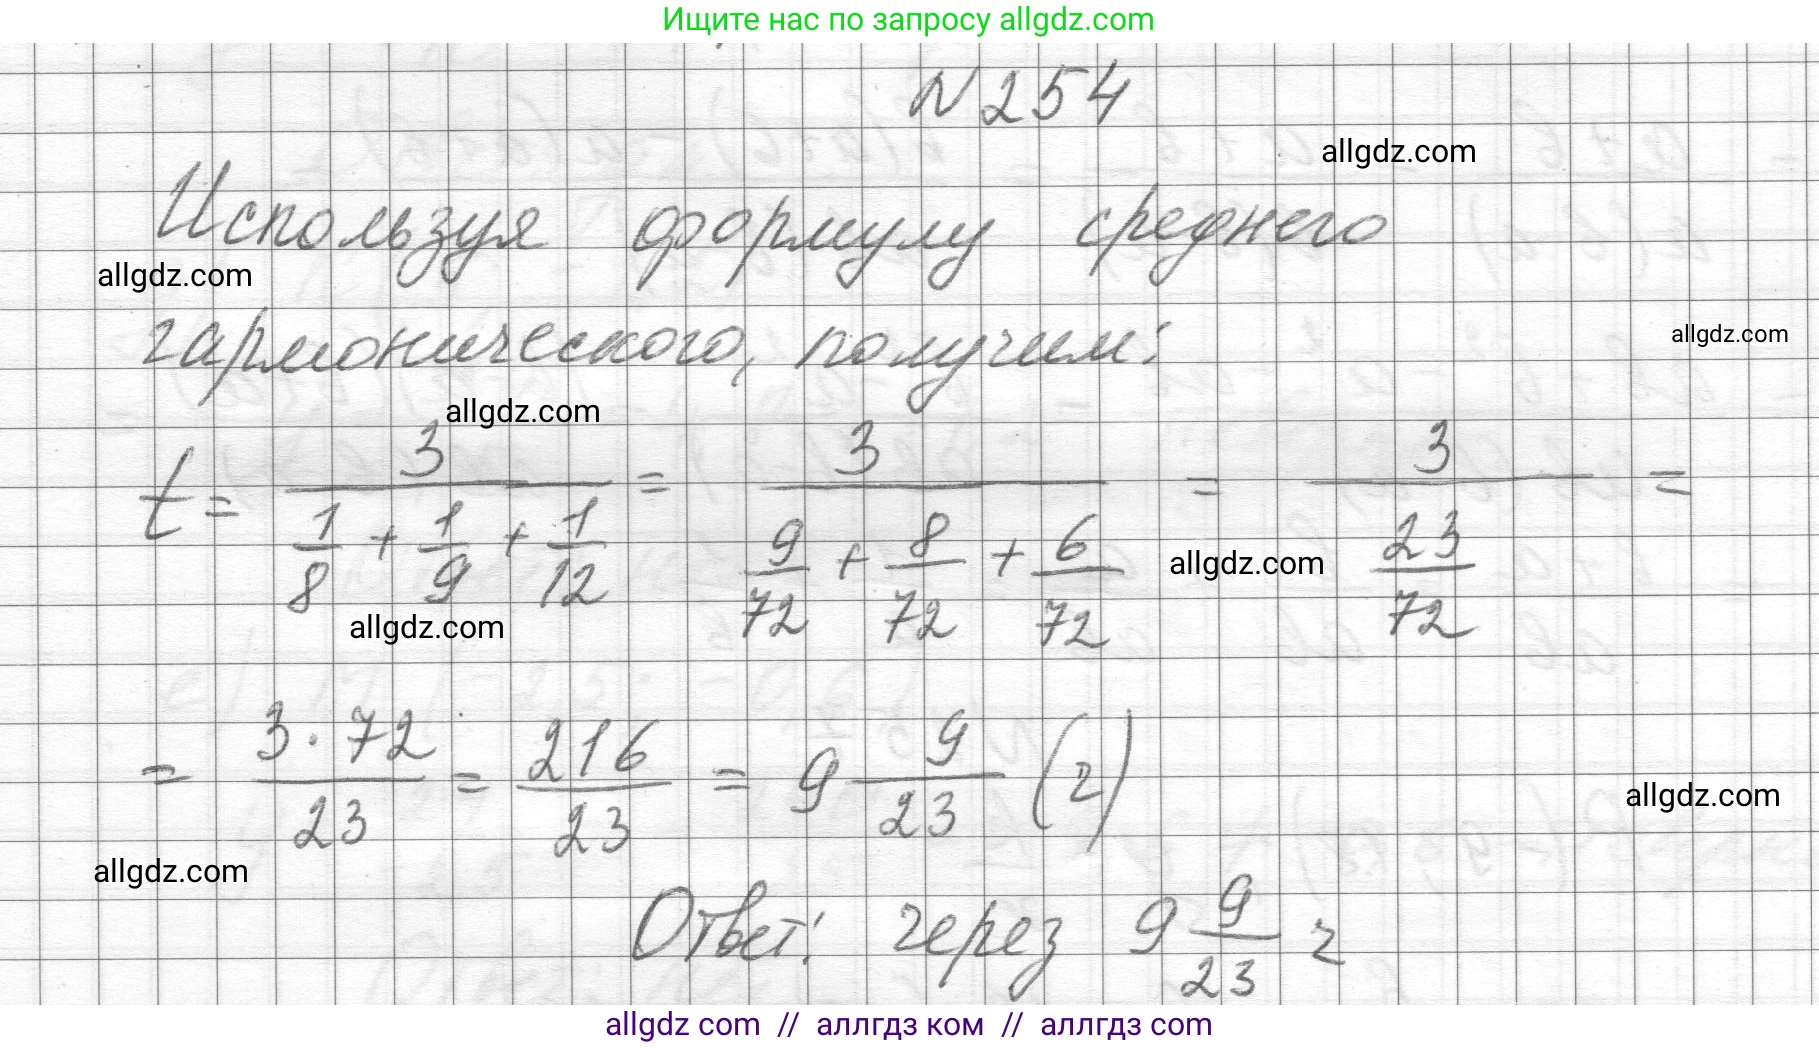 Ищите нас по запросу allgdz.com
N 254
allgdz.com
Используя формулу среднего
allgdz.com
гармонического, получим:
allgdz.com
allgdz.com
t = 3/(1/8 + 1/9 + 1/12) = 3/(9/72 + 8/72 + 6/72) = 3/(23/72) =
allgdz.com
allgdz.com
= 3·72/23 = 216/23 = 9 9/23 (ч)
allgdz.com
allgdz.com
Ответ: через 9 9/23 ч
allgdz com // аллгдз ком // аллгдз com